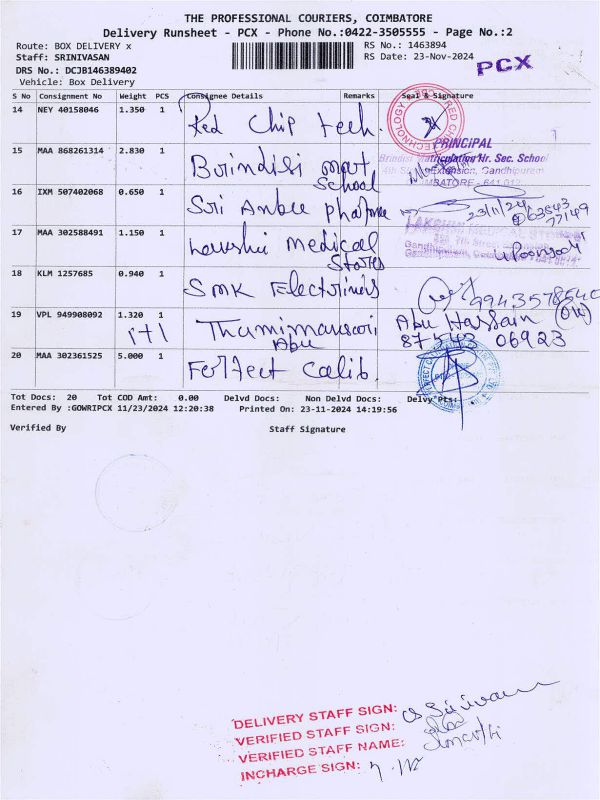 THE PROFESSIONAL COURIERS, COIMBATORE
Delivery Runsheet - PCX - Phone No.:0422-3505555 - Page No.:2
Route: BOX DELIVERY x
RS No.: 1463894
Staff: SRINIVASAN
RS Date: 23-Nov-2024
PCX
DRS No.: DCJB146389402
Vehicle: Box Delivery
S No Consignment No Weight PCS Consignee Details Remarks Seal & Signature
14 NEY 40158046 1.350 1 Red Chip tech.
15 MAA 868261314 2.830 1 Brindisi mat School
PRINCIPAL
Brindisi Matriculation Hr. Sec. School
Extension, Gandhipuram
16 IXM 507402068 0.650 1 Sri Anbu pharma
23/11/24
63843
77149
17 MAA 302588491 1.150 1 Lakshmi medical Stores
LAKSHMI MEDICAL STORES
18 KLM 1257685 0.940 1 SMK Electricals
9943578640
19 VPL 949908092 1.320 1 1+1 Thamimansari Abu
Abu Hassain
87543 06923
20 MAA 302361525 5.000 1 Perfect Calib.
Tot Docs: 20 Tot COD Amt: 0.00 Delvd Docs: Non Delvd Docs: Delvy Pts:
Entered By :GOWRIPCX 11/23/2024 12:20:38 Printed On: 23-11-2024 14:19:56
Verified By Staff Signature
DELIVERY STAFF SIGN:
VERIFIED STAFF SIGN:
VERIFIED STAFF NAME:
INCHARGE SIGN: